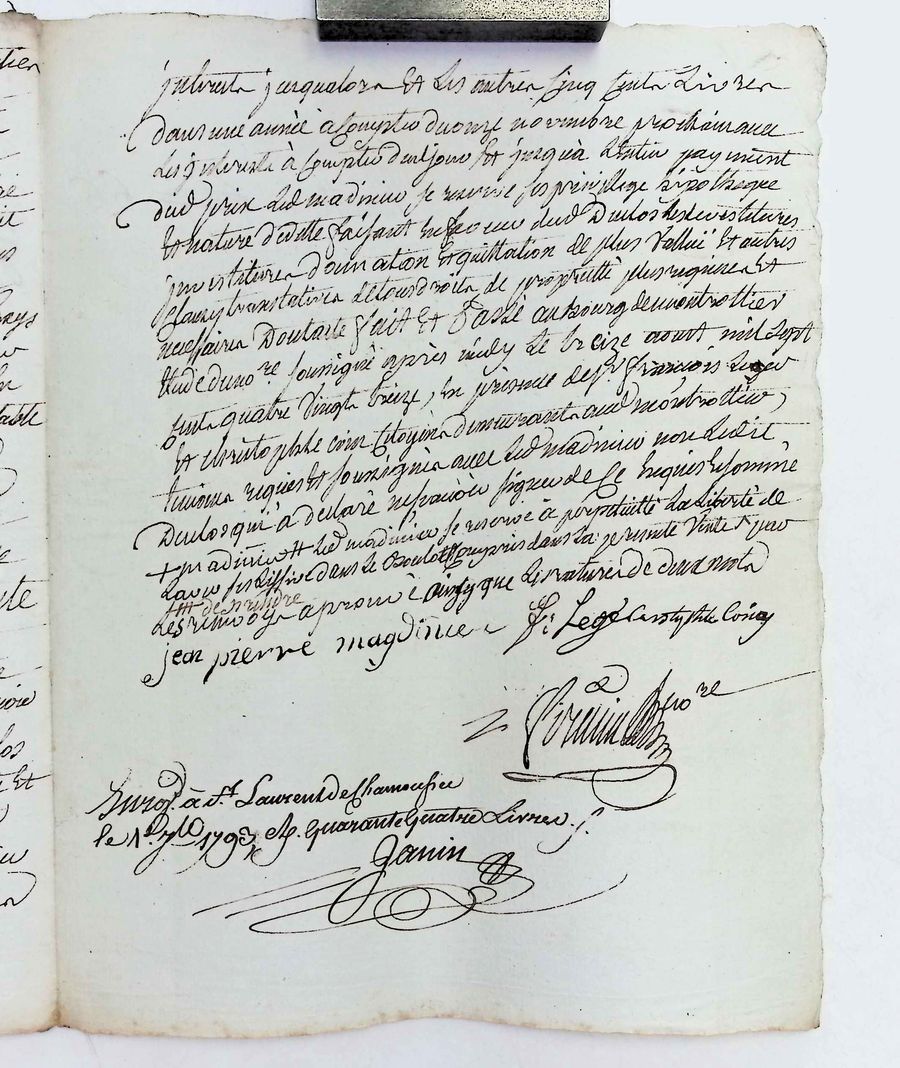 jnterests jusqualors Et Les autres Cinq Cents Livres
dans une année a Compter du onze novembre prochain avec
Les jnterests à Compter dud jour Et jusquà Lentier payement
dud prix Led madinier se reserve ses privilege
Et nature de faisant En faveur dud Duclos
jnvestitures donnation Et quittation de plus Vallüe Et autres
Clauzes translatives de tous droits de proprietté plus requises Et
necessaires Dont acte fait Et Passé au bourg de montrottier
Etude du no.re soussigné après midy Le treize aoust mil Sept
Cents quatre Vingts treize, En presence de Sr françois Leger
Et christophle Coin Citoyens demeurants aud montrottier,
temoins requis Et soussignés avec Led madinier non Ledit
Duclos qui a declaré ne savoir signer de Ce Enquis Et sommé
+ madinier ++ Led madinier se reserve à perpetuitté La Liberté de
Laver ses Lessives dans Le Compris dans La presente Vente, par
+++ de prendre
Les renvoys aprouvé ainsy que Les ratures de deux mots
jean pierre magdinier F: Legé Cristophle Coing
no.re
Enreg.t à S.t Laurent de Chamousset
le 1.er 7.bre 1793, R. Quarante Quatre Livres
Janin